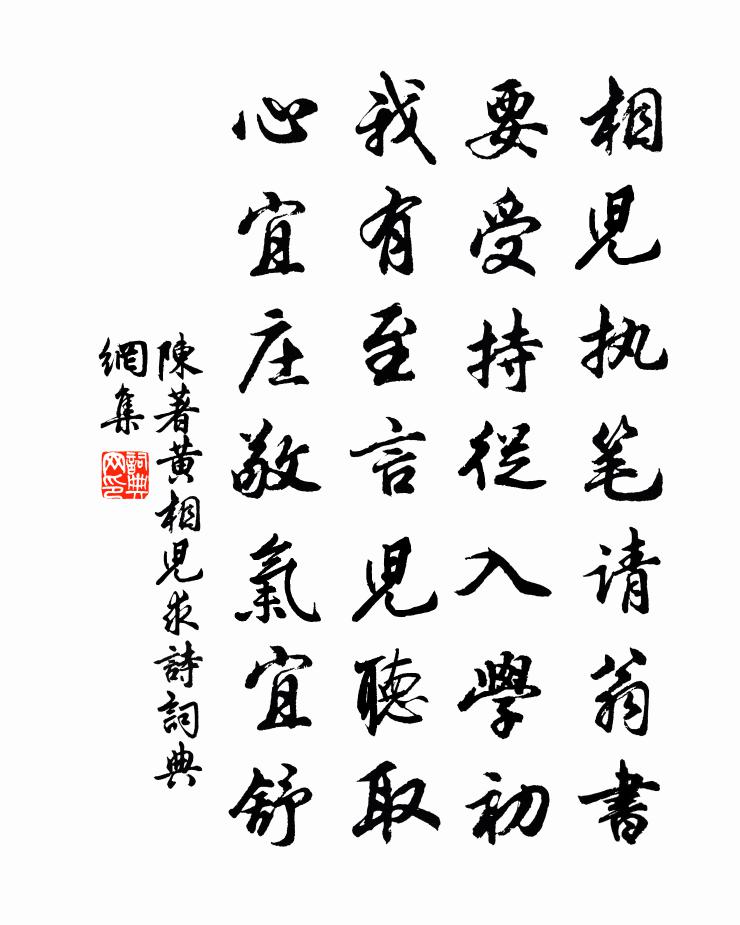 相児执笔请翁書
要受持從入學初
我有至言児聽取
心宜庄敬氣宜舒
陳著黄相児求詩詞典
網集
詞典
网印